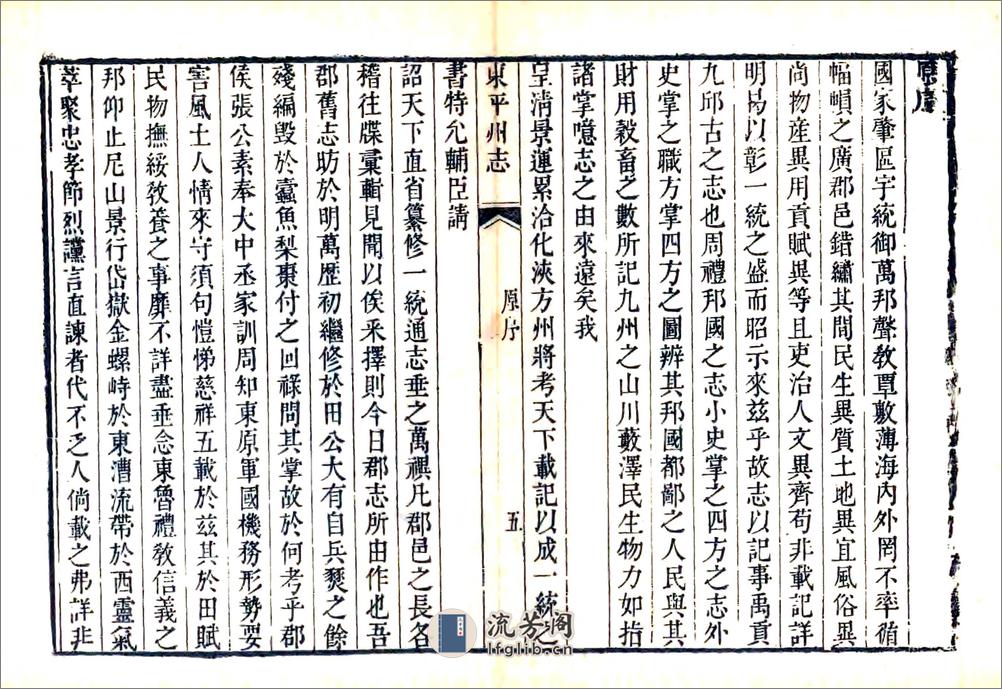 原序
國家肇區宇統御萬邦聲敎覃敷薄海內外罔不率循
幅幀之廣郡邑錯繡其間民生異質土地異宜風俗異
尚物産異用貢賦異等且吏治人文異齊苟非載記詳
明曷以彰一統之盛而昭示來兹乎故志以記事禹貢
九邱古之志也周禮邦國之志小史掌之四方之志外
史掌之職方掌四方之圖辨其邦國都鄙之人民與其
財用穀畜之數所記九州之山川藪澤民生物力如指
諸掌噫志之由來遠矣我
皇淸景運累洽化浹方州將考天下載記以成一統之
東平州志
原序
五
書特允輔臣請
詔天下直省纂修一統通志垂之萬禩凡郡邑之長名
稽往牒彙輯見聞以俟采擇則今日郡志所由作也吾
郡舊志昉於明萬歷初繼修於田公大有自兵燹之餘
殘編毀於蠹魚梨棗付之回祿問其掌故於何考乎郡
侯張公素奉大中丞家訓周知東原軍國機務形勢要
害風土人情來守須句愷悌慈祥五載於兹其於田賦
民物撫綏敎養之事靡不詳盡垂念東魯禮敎信義之
邦仰止尼山景行岱嶽金螺峙於東漕流帶於西靈氣
萃聚忠孝節烈讜言直諫者代不乏人倘載之弗詳非
流芳阁
lfglib.cn